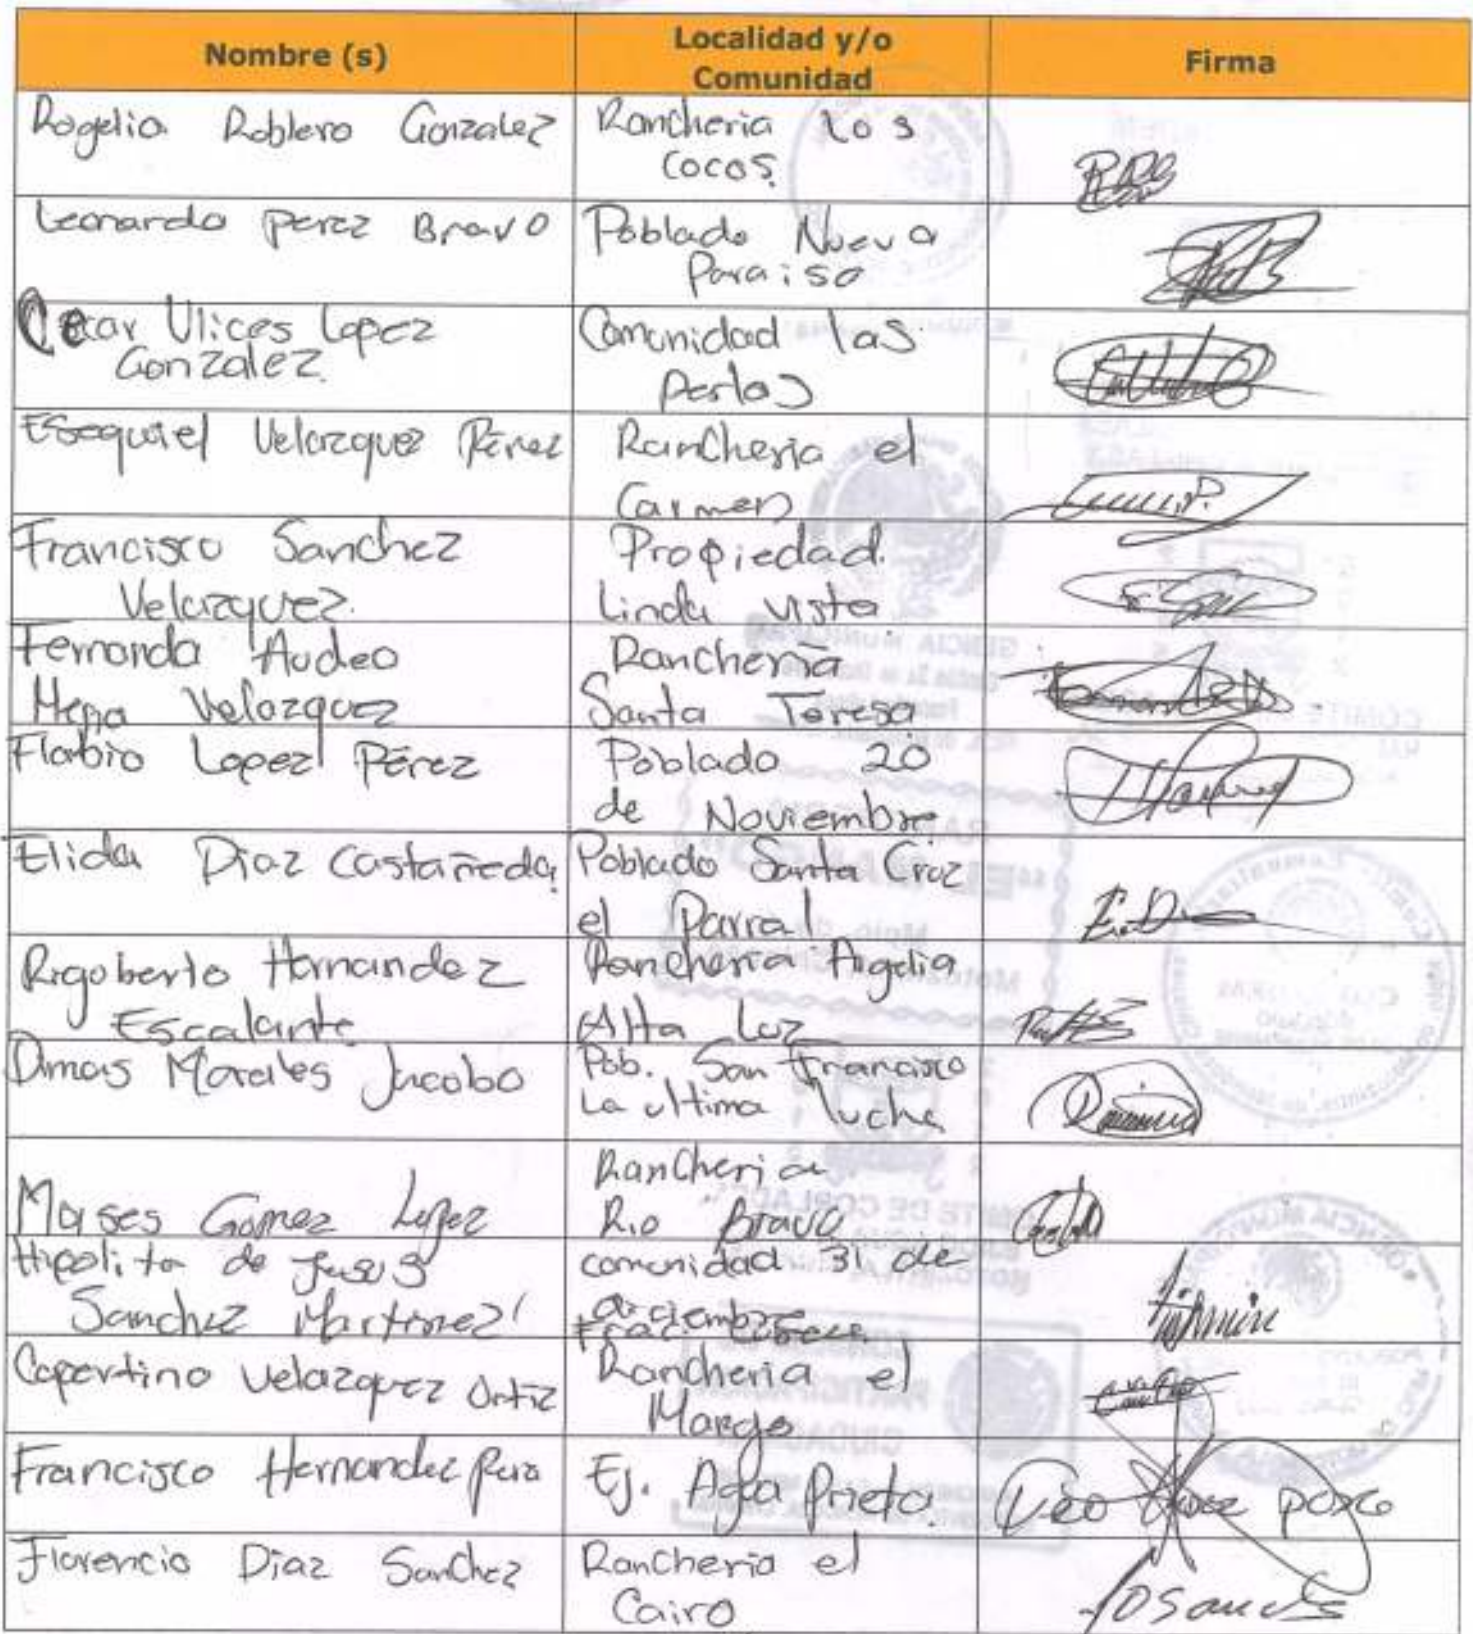 Nombre (s)
Localidad y/o
Comunidad
Firma
Rogelio Roblero Gonzalez
Rancheria los
Cocos.
Leonardo perez Bravo
Poblado Nueva
Paraiso
Cecar Ulices Lopez
Gonzalez.
Comunidad las
perlas
Esequiel Velazquez Pérez
Rancheria el
Carmen
Francisco Sanchez
Velazquez.
Propiedad.
Linda vista
Fernanda Audeo
Mepa Velazquez
Rancheria
Santa Teresa
Florbio Lopez Pérez
Poblado 20
de Noviembre
Elida Diaz Castañeda
Poblado Santa Cruz
el Parral
E.D
Rigoberto Hernandez
Escalante
Rancheria Argelia
Alta Luz
Dimas Morales Jacobo
Pob. San Francisco
La ultima lucha
Moises Gomez Lopez
Rancheria
Rio Bravo
Hipolito de Jesus
Sanchez Martinez
comunidad 31 de
diciembre
Copertino Velazquez Ortiz
Rancheria el
Mango
Francisco Hernandez
Ej. Agua Prieta.
Florencio Diaz Sanchez
Rancheria el
Cairo